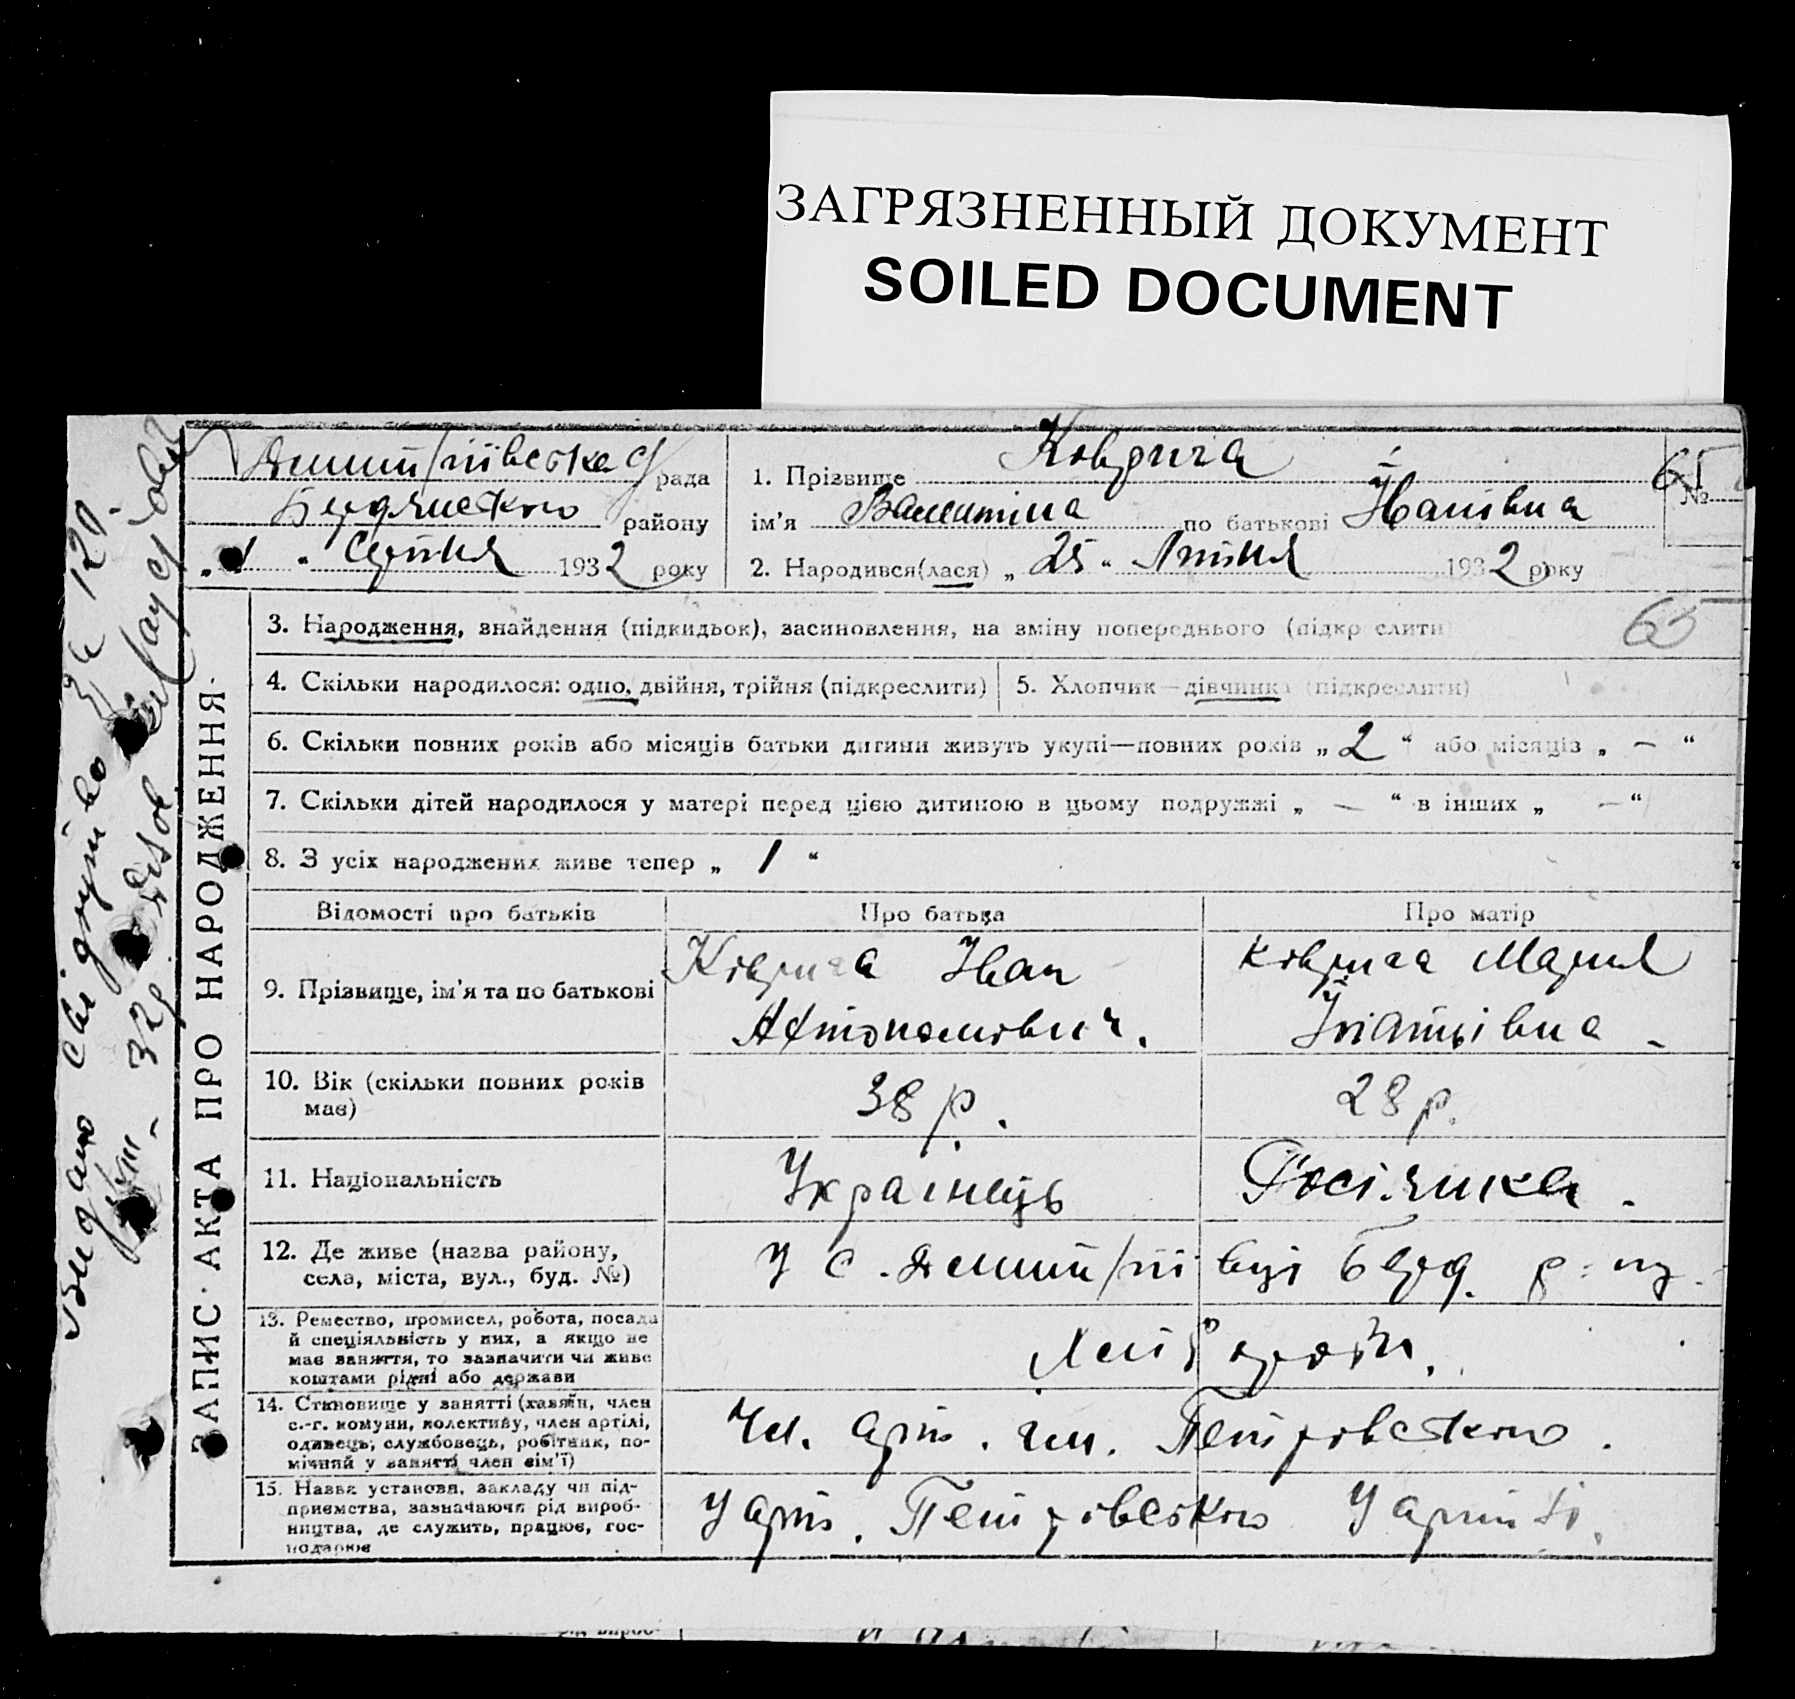 ЗАГРЯЗНЕННЫЙ ДОКУМЕНТ
SOILED DOCUMENT
рада
Бердянського району
"1" Серпня 1932 року
1. Прізвище Коврига
№ 65
ім'я Валентіна по батькові Йванівна
2. Народився(лася) „25" Липня 1932 року
ЗАПИС АКТА ПРО НАРОДЖЕННЯ
3. Народження, знайдення (підкидьок), засиновлення, на зміну попереднього (підкр слити
65
4. Скільки народилося: одно, двійня, трійня (підкреслити)
5. Хлопчик—дівчинка (підкреслити)
6. Скільки повних років або місяців батьки дитини живуть укупі—повних років „2" або місяців „—"
7. Скільки дітей народилося у матері перед цією дитиною в цьому подружжі „—" в інших „—"
8. З усіх народжених живе тепер „1"
Відомості про батьків
Про батька
Про матір
9. Прізвище, ім'я та по батькові
Коврига Іван
Автономович.
Коврига Мария
Ігнатьівна -
10. Вік (скільки повних років
має)
38 р.
28 р.
11. Національність
Українець
Росіянка.
12. Де живе (назва району,
села, міста, вул., буд. №)
У с. Дмит/рівці Берд. р-ну.
13. Ремество, промисел, робота, посада
й спеціяльність у них, а якщо не
має заняття, то зазначити чи живе
коштами рідні або держави
Хлібороби.
14. Становище у занятті (хазяїн, член
с.-г. комуни, колективу, член артілі,
одинець, службовець, робітник, по-
мічний у занятті член сім'ї)
Чл. арт. ім. Петровського.
15. Назва установи, закладу чи під-
приємства, зазначаючи рід вироб-
ництва, де служить, працює, гос-
подарює
У арт. Петровського
У артілі.
Видано свідоцтво за 120.